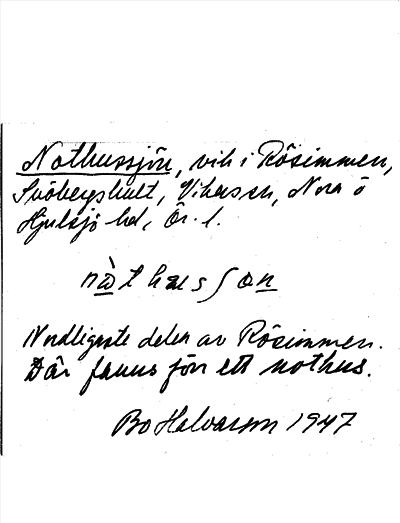 Nothussjön, vik i Rösimmen,
Snöbergshult, Vikersvn, Nora o
Hjulsjö hd, Ör. l.
nò̲thusʃo̲n̲
Nordligaste delen av Rösimmen.
Där fanns förr ett nothus.
Bo Halvarson 1947